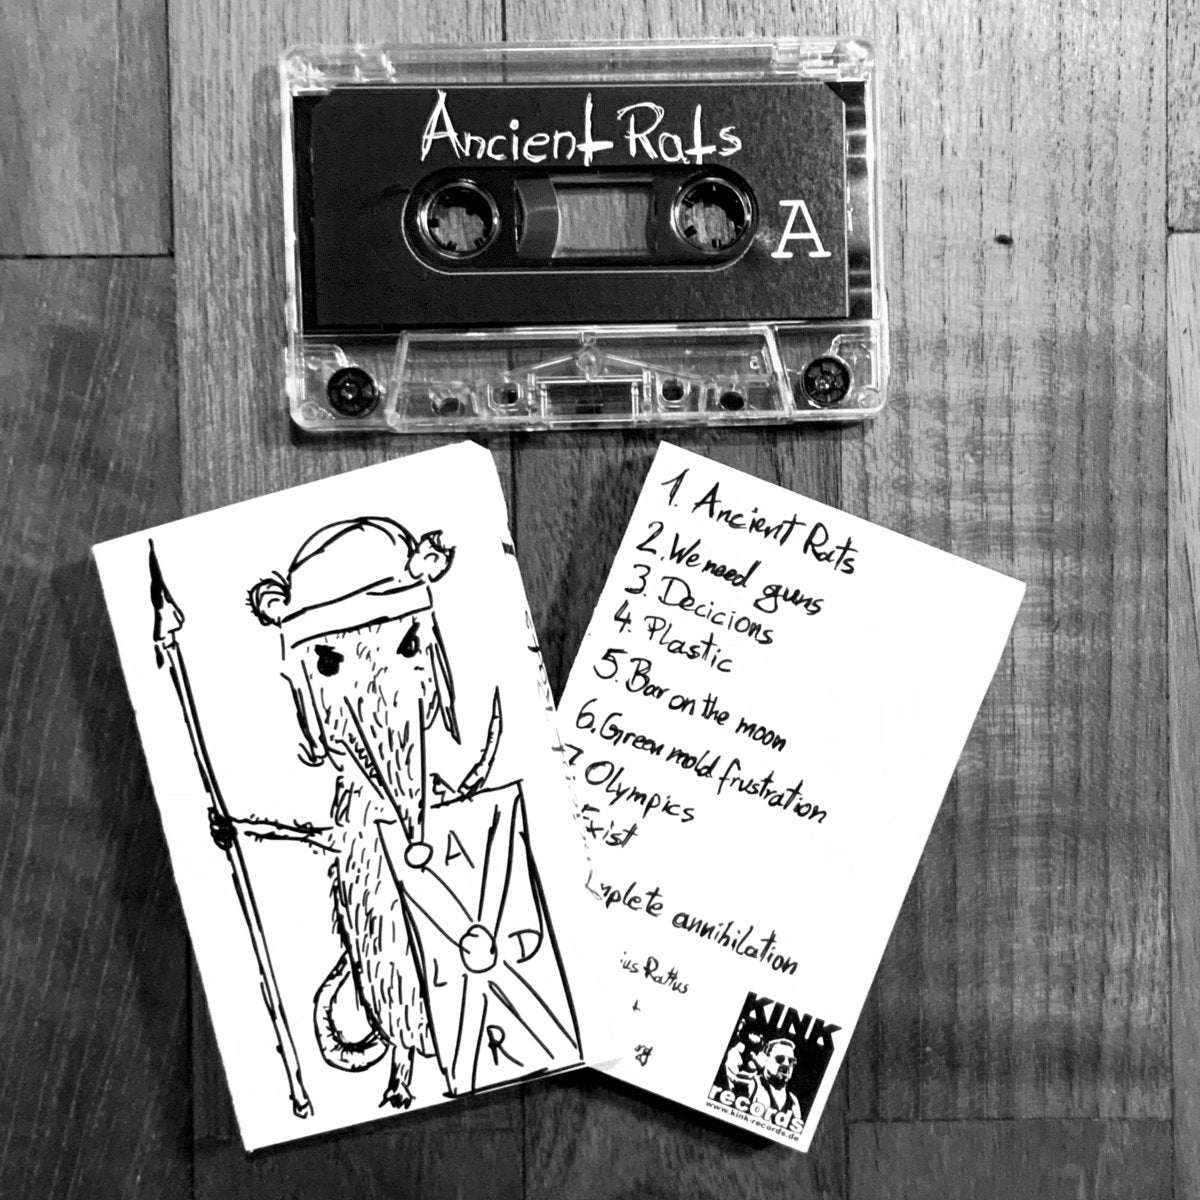 Ancient Rats
A
A
D
L
R
1. Ancient Rats
2. We need guns
3. Decicions
4. Plastic
5. Bar on the moon
6. Green mold frustration
7. Olympics
Exist
mplete annihilation
ius Rattus
KINK
records
www.kink-records.de